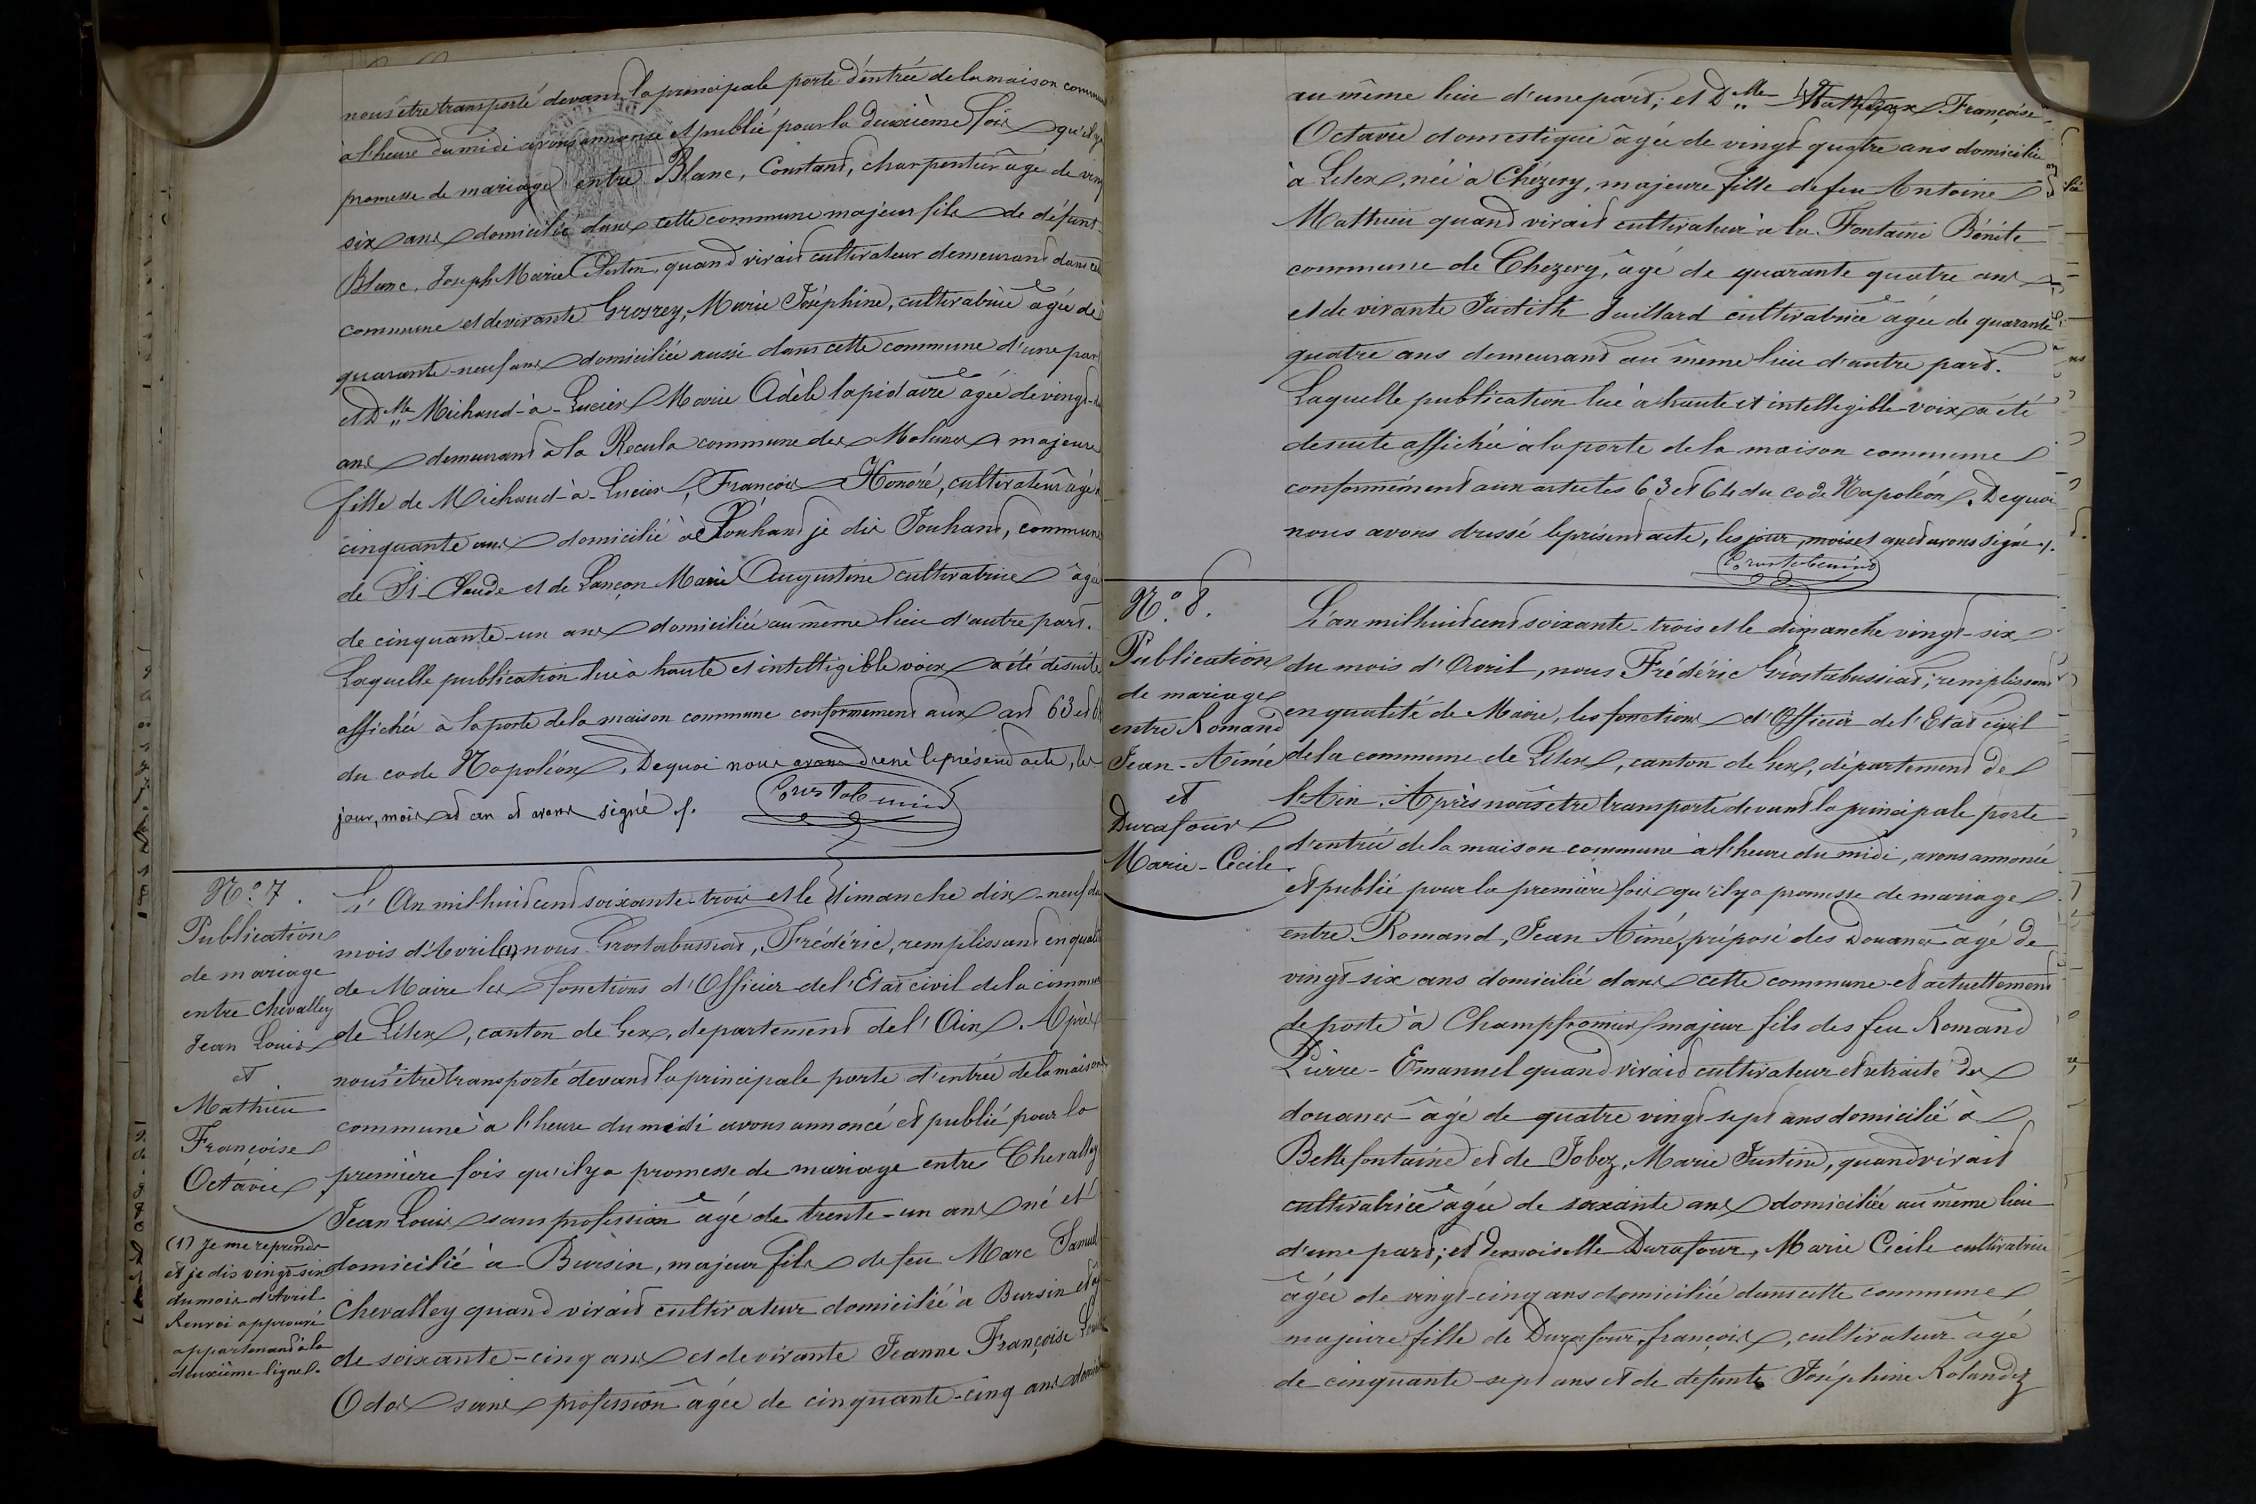 nous être transporté devant la principale porte d'entrée de la maison commune
à l'heure du midi avons annoncé et publié pour la deuxième fois qu'il y a
promesse de mariage entre Blanc, Constant, charpentier âgé de vingt
six ans domicilié dans cette commune majeur fils de défunt
Blanc, Joseph Marie Célestin, quand vivait cultivateur demeurant dans cette
commune et de vivante Grosrey, Marie Joséphine, cultivatrice âgée de
quarante-neuf ans domiciliée aussi dans cette commune d'une part
et Dlle Michaud-à-Lucien Marie Adèle lapidaire âgée de vingt-
ans demeurant à la Recula commune des Molunes majeure
fille de Michaud-à-Lucien, François Honoré, cultivateur âgé
cinquante ans domicilié à Louhand je dis Jouhand, commune
de St-Claude et de Lançon Marie Augustine cultivatrice âgée
de cinquante-un ans domiciliée au même lieu d'autre part.
Laquelle publication lue à haute et intelligible voix a été desuite
affichée à la porte de la maison commune conformément aux art 63 et 6
du code Napoléon. De quoi nous avons dressé le présent acte, les
jour, mois et an et avons signé ./.
N.o 7.
Publication
de mariage
entre Chevalley
Jean Louis
et
Mathieu
Françoise
Octavie
(1) Je me reprends
et je dis vingt-six
du mois d'Avril
Renvoi approuvé
appartenant à la
deuxième ligne.
L'An mil huit cent soixante-trois et le dimanche dix-neuf du
mois d'Avril (1) nous Grostabussiat, Frédéric, remplissant en qualité
de Maire les fonctions d'Officier de l'Etat civil de la commune
de Lélex, canton de Gex, département de l'Ain. Après
nous être transporté devant la principale porte d'entrée de la maison
commune à l'heure du midi avons annoncé et publié pour la
première fois qu'il y a promesse de mariage entre Chevalley
Jean Louis sans profession âgé de trente-un ans né et
domicilié à Bursin, majeur fils de feu Marc Samuel
Chevalley quand vivait cultivateur domicilié à Bursin et âgé
de soixante-cinq ans et de vivante Jeanne Françoise
Odot sans profession âgée de cinquante-cinq ans
au même lieu d'une part; et Dlle Mathieux Françoise-
Octavie domestique âgée de vingt quatre ans domiciliée
à Lélex, née à Chézery, majeure fille de feu Antoine
Mathieu quand vivait cultivateur à la Fontaine Bénite
commune de Chezery, âgé de quarante quatre ans
et de vivante Judith Juillard cultivatrice âgée de quarante
quatre ans demeurant au même lieu d'autre part.
Laquelle publication lue à haute et intelligible voix a été
desuite affichée à la porte de la maison commune
conformément aux articles 63 et 64 du code Napoléon. De quoi
nous avons dressé le présent acte, les jour, mois et an et avons signé ./.
N.o 8.
Publication
de mariage
entre Romand
Jean-Aimé
et
Durafour
Marie-Cécile
L'an mil huit cent soixante-trois et le dimanche vingt-six
du mois d'Avril, nous Frédéric Grostabussiat, remplissant
en qualité de Maire, les fonctions d'Officier de l'Etat civil
de la commune de Lélex, canton de Gex, département de
l'Ain. Après nous être transporté devant la principale porte
d'entrée de la maison commune à l'heure du midi, avons annoncé
et publié pour la première fois qu'il y a promesse de mariage
entre Romand, Jean Aimé, préposé des Douanes âgé de
vingt-six ans domicilié dans cette commune et actuellement
de poste à Champfromier majeur fils des feu Romand
Pierre-Emanuel quand vivait cultivateur et retraité des
douanes âgé de quatre vingt-sept ans domicilié à
Bellefontaine et de Jobez, Marie Justine, quand vivait
cultivatrice âgée de soixante ans domiciliée au même lieu
d'une part; et demoiselle Durafour, Marie Cécile cultivatrice
âgée de vingt-cinq ans domiciliée dans cette commune
majeure fille de Durafour, françois, cultivateur âgé
de cinquante-sept ans et de defunte Joséphine Rolandez